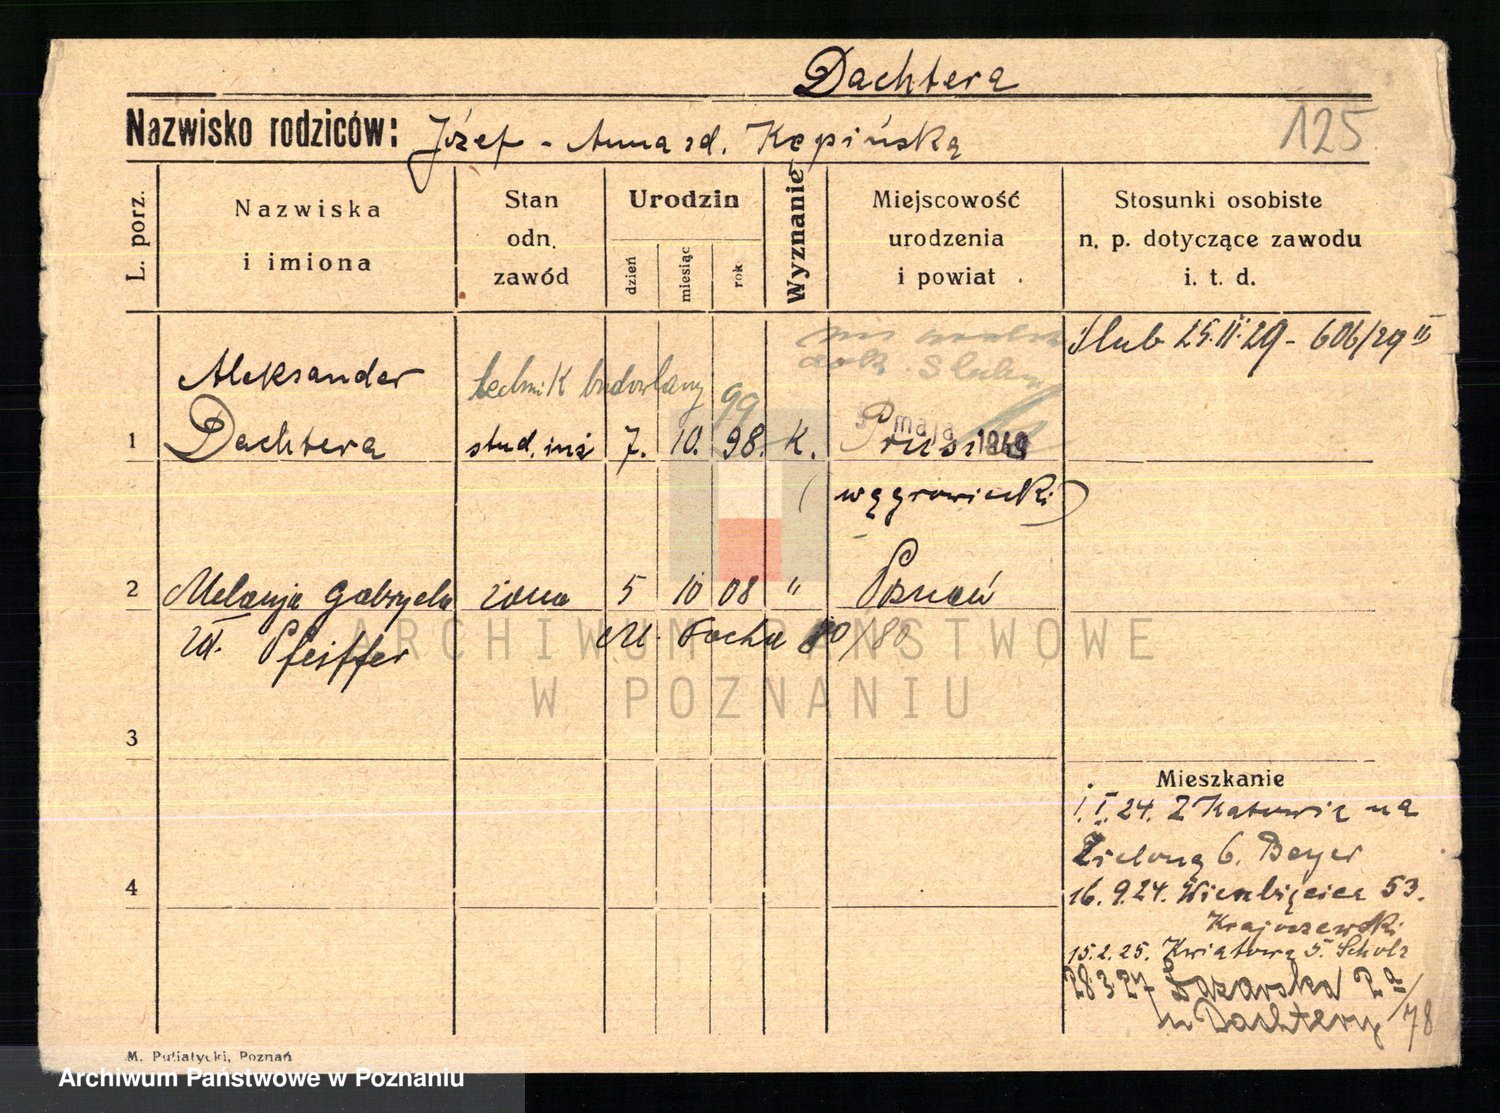 Dachtera
Nazwisko rodziców: Józef - Anna zd. Kępińska
125
L. porz.
Nazwiska
i imiona
Stan
odn.
zawód
Urodzin
dzień
miesiąc
rok
Wyznanie
Miejscowość
urodzenia
i powiat
Stosunki osobiste
n. p. dotyczące zawodu
i. t. d.
ślub 25.II.29 - 606/29 II
Aleksander
technik budowlany
99
1 Dachtera stud. inż 7. 10. 98. K. Prusi
maja 1949
(wągrowiecki)
2 Melanja Gabryela żona 5 10 08 " Poznań
zd. Pfeiffer
M. Focha 80/80
ARCHIWUM PAŃSTWOWE
W POZNANIU
3
Mieszkanie
1.I.24. Z Katowic na
Zieloną 6. Beyer
4
16.9.24. Wierzbięcice 53.
Krajoszewski
15.2.25. Kwiatowa 5. Scholz
28.3.27 Łazarska 2a/78
u Dachtery
M. Putiatycki, Poznań
Archiwum Państwowe w Poznaniu